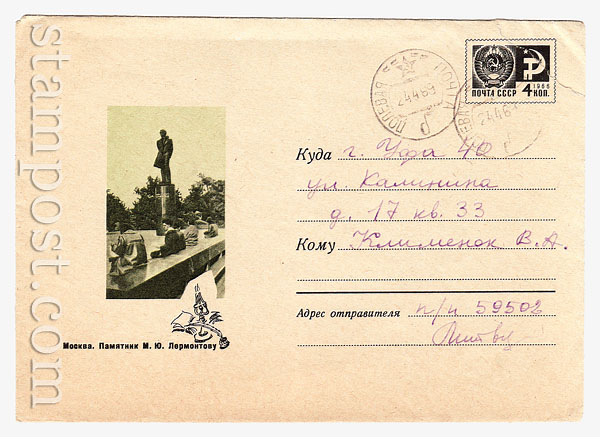 stampost.com
ПОЛЕВАЯ ПОЧТА
24 4 69
ПОЧТА СССР 4 КОП.
1966
Куда г. Уфа 40
ул. Калинина
д. 17 кв. 33
Кому Клименок В.А.
Адрес отправителя п/п 59502
Москва. Памятник М. Ю. Лермонтову